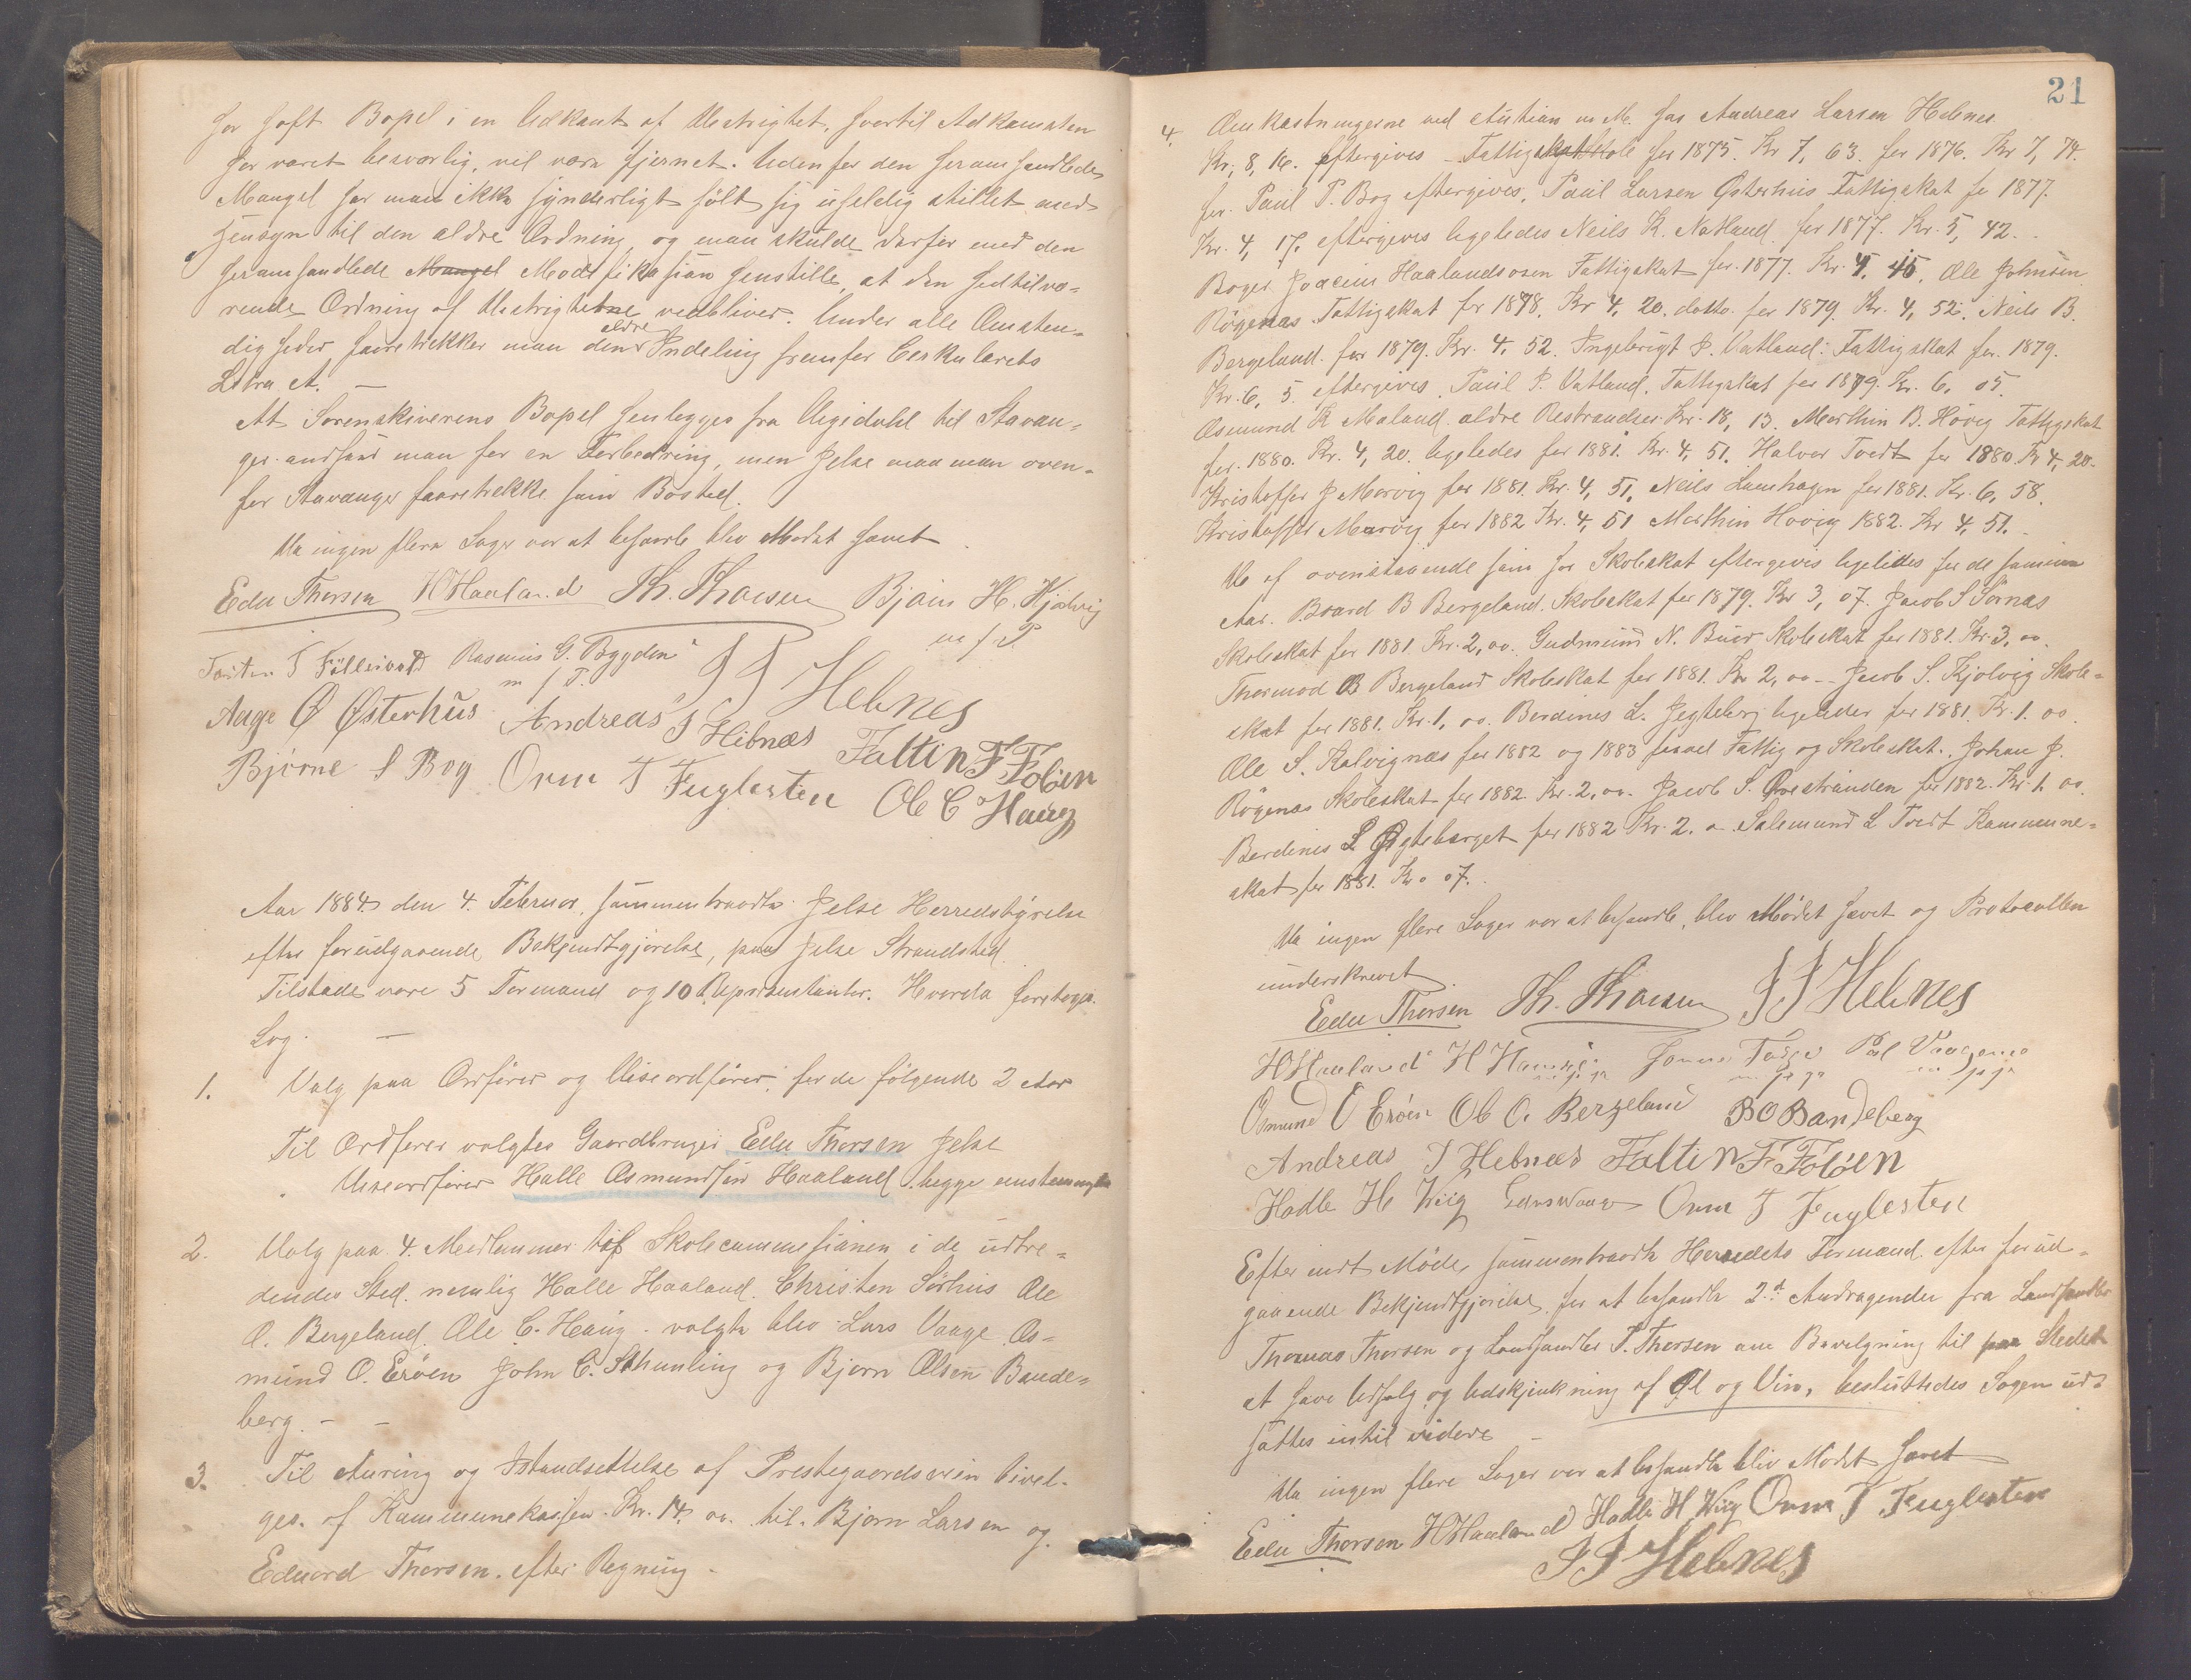 har haft Bopel i en Udkant af Distrigtet, hvortil Adkomsten
har været besværlig, vil være fjernet. Udenfor den heromhandlede
Mangel har man ikke synderligt følt sig uheldig stillet med
Hensyn til den ældre Ordning, og man skulde derfor med den
heromhandlede Mangel Modifikasion henstille, at den hidtilvæ=
rende Ordning af Distrigterne vedbliver. Under alle Omsten=
digheder foretrekker man den ældre Indeling fremfor Cerkulærets
Litra A. —
At Sorenskiverens Bopel henlegges fra Øgidahl til Stavan=
ger andsaas man for en Forbedring, men Jelse maa man oven=
for Stavanger foretrekke som Bosted.
Da ingen flere Sager var at behandle blev Mødet hævet
Edu Thorsen HHaaland Th. Thorsen Bjørn H. Hjølvig
m f P.
Rasmus G. Bøgyden J J Helnes
m f P.
Aage Ø Østerhus Andreas J Hebnæs Faltin F Foløen
Bjørne S Bog Orm T Fuglesten Ole C Haug
Aar 1884 den 4. Februar, sammentraadte Jelse Herredstyrelse
efter forudgaaende Bekjendtgjørelse, paa Jelse Strandsted.
Tilstede vare 5 Formænd og 10 Representanter. Hvorda foretoges.
Sag. —
1. Valg paa Ordfører og Viseordfører, for de følgende 2 Aar
Til Ordfører valgtes Gaardbruger Edu Thorsen Jelse
" Viseordfører Halle Osmundsen Haaland begge enstemmigt
2. Valg paa 4. Medlemmer af Skolecommesionen i de udtre=
dendes Sted. nemlig Halle Haaland. Christen Sørhus Ole
O. Bergeland. Ole C. Haug. valgte blev Lars Vaage Os=
mund O. Erøen John C. Schunling og Bjørn Olsen Bande=
berg. — —
3. Til Auring og Istandsettelse af Prestegaardsveien bivel=
ges. af Kommunekassen Kr. 14. 00. til Bjørn Larsen og
Eduard Thorsen. efter Regning.
21
4. Omkostningerne ved Aution m M. hos Andreas Larsen Hebnes
Kr. 8, 16. eftergives — Fattigskat Skole for 1875. Kr 7, 63. for 1876. Kr 7, 74.
for. Paul P. Bog eftergives, Paul Larsen Østerhus Fattigskat for 1877.
Kr. 4, 17. eftergives ligeledes Neils K. Natland for 1877. Kr. 5, 42.
Boger Joreius Haalandsosen Fattigskat for 1877. Kr. 4, 45. Ole Johnsen
Røgenæs Fattigskat for 1878. Kr 4, 20. dotto for 1879. Kr. 4, 52. Neils B.
Bergeland. for 1879. Kr. 4. 52. Ingebrigt P. Vatland. Fattigskat for 1879.
Kr. 6, 5. eftergives. Paul P. Vatland. Fattigskat for 1879. Kr. 6, 05.
Osmund K Maland ældre Restrandser Kr. 18, 13. Marthin B. Høvig Fattigskat
for 1880. Kr. 4, 20. ligeledes for 1881. Kr. 4, 51. Halvor Tvedt for 1880. Kr 4, 20.
Kristoffer J Marvig for 1881. Kr. 4, 51. Neils Lunhagen for 1881. Kr. 6, 58.
Kristoffer Marvig for 1882 Kr. 4, 51 Marthin Hovig 1882. Kr 4, 51.
De af ovenstaaende som har Skoleskat eftergives ligeledes for de samme
Aar. Baard B Bergeland. Skoleskat for 1879. Kr 3, 07. Jacob S Sørnæs
Skoleskat for 1881. Kr. 2, 00. Gudmund N. Buer Skoleskat for 1881. Kr. 3, 00.
Thormod B Bergeland Skoleskat for 1881. Kr 2, 00 — Jacob S. Kjølvig Skole=
skat for 1881. Kr. 1, 00. Berdines L. Jegteberj ligeledes for 1881. Kr. 1. 00.
Ole S. Kalvignæs for 1882 og 1883 forved Fattig og Skoleskat. Johan J.
Røgenæs Skoleskat for 1882. Kr. 2, 00. Jacob S. Øvrestranden for 1882. Kr. 1. 00.
Berdines L Øgteberget for 1882 Kr. 2. 00. Salemund L Tvedt Kommune=
skat for 1881. Kr. 0 07.
Da ingen flere Sager var at behandle, blev Mødet hævet og Protocollen
underskrevet
Edu Thorsen Th. Thorsen J J Helnes
HHaaland H Hauge Pål Vaage
m p p m p p m p p
Osmund O Erøen Ole O. Bergeland B O Bandeberg
Andreas J Hebnæs Faltin F Foløen
Hadle H Wiig Lars Waage Orm T Fuglesten
Efter endt Møde, sammentraadte Herredets Formænd efter forud=
gaaende Bekjendtgjørelse for at behandle 2de Andragender fra Landhandler
Thomas Thorsen og Landhandler T. Thorsen om Bevelgning til paa Stedet
at have Udsalg og Udskjenkning af Øl og Vin, besluttedes Sagen ud=
sattes intil videre —
Da ingen flere Sager var at behandle blev Mødet hævet
Edu Thorsen HHaaland Hadle H Wiig Orm T Fuglesten
J J Helnes